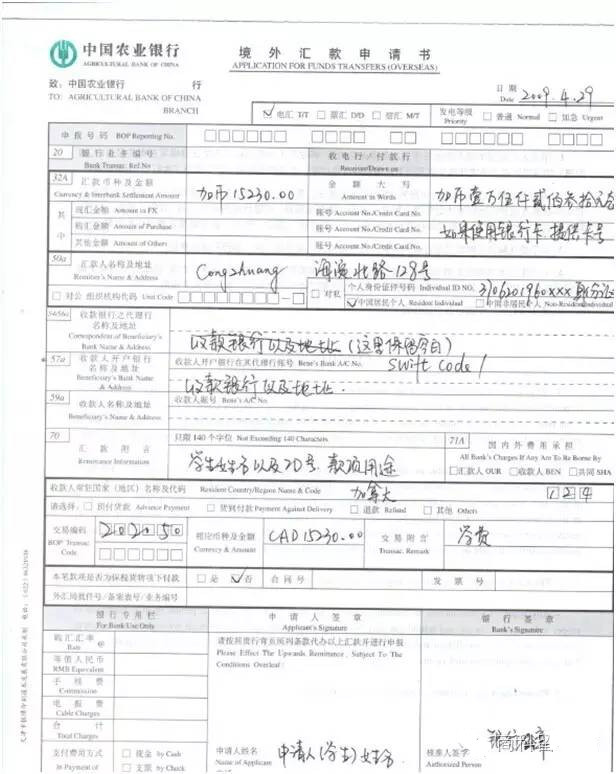 中国农业银行
AGRICULTURAL BANK OF CHINA
境外汇款申请书
APPLICATION FOR FUNDS TRANSFERS (OVERSEAS)
致：中国农业银行 行
TO: AGRICULTURAL BANK OF CHINA
BRANCH
日期
Date 2009.4.29
√电汇 T/T □票汇 D/D □信汇 M/T 发电等级 Priority □普通 Normal □加急 Urgent
申报号码 BOP Reporting No.
20 银行业务编号 Bank Transac. Ref.No 收电行/付款行 Receiver/Drawn on
32A 汇款币种及金额 Currency & Interbank Settlement Amount 加币15230.00 金额大写 Amount in Words 加币壹万伍仟贰佰叁拾元
其中 现汇金额 Amount in FX 账号 Account No./Credit Card No.
购汇金额 Amount of Purchase 账号 Account No./Credit Card No. 如果使用银行卡提供卡号
其他金额 Amount of Others 账号 Account No./Credit Card No.
50a 汇款人名称及地址 Remitter's Name & Address Cong zhuang 海滨北路128号
□对公 组织机构代码 Unit Code □对私 个人身份证件号码 Individual ID NO. 3106201960xxx
√中国居民个人 Resident Individual □中国非居民个人 Non-Resident Individual
54/56a 收款银行之代理行名称及地址 Correspondent of Beneficiary's Bank Name & Address 收款银行以及地址（这里保留空白）
57a 收款人开户银行名称及地址 Beneficiary's Bank Name & Address 收款人开户银行在其代理行账号 Bene's Bank A/C No. Swift code
收款银行以及地址.
59a 收款人名称及地址 Beneficiary's Name & Address 收款人账号 Bene's A/C No.
70 汇款附言 Remittance Information 只限140个字位 Not Exceeding 140 Characters 学生姓名以及ID号,款项用途
71A 国内外费用承担
All Bank's Charges If Any Are To Be Borne By
□汇款人 OUR □收款人 BEN □共同 SHA
收款人常驻国家（地区）名称及代码 Resident Country/Region Name & Code 加拿大 124
请选择：□预付货款 Advance Payment □货到付款 Payment Against Delivery □退款 Refund □其他 Others
交易编码 BOP Transac. Code 202050 相应币种及金额 Currency & Amount CAD15230.00 交易附言 Transac. Remark 学费
本笔款项是否为保税货物项下付款 □是 √否 合同号 发票号
外汇局批件号/备案表号/业务编号
银行专用栏 For Bank Use Only 申请人签章 Applicant's Signature 银行签章 Bank's Signature
购汇汇率 Rate @ 请按照贵行背页所列条款代办以上汇款并进行申报
Please Effect The Upwards Remittance, Subject To The Conditions Overleaf:
等值人民币 RMB Equivalent
手续费 Commission
电报费 Cable Charges
合计 Total Charges
支付费用方式 In Payment of □现金 by Cash
□支票 by Check
申请人姓名 Name of Applicant 申请人(学生)姓名
核准人签字 Authorized Person